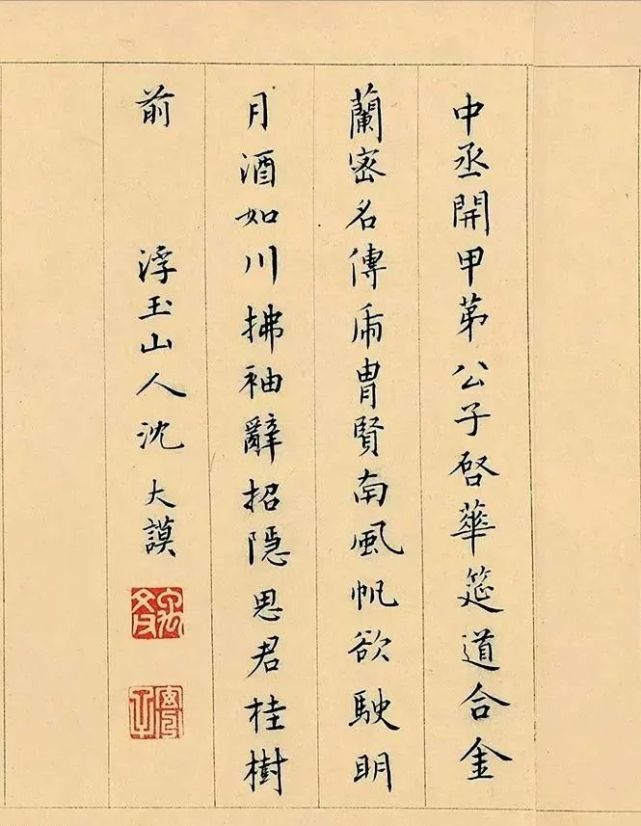 中丞開甲第公子啓華筵道合金
蘭密名傳𦙍冑賢南風帆欲駛明
月酒如川拂袖辭招隱思君桂樹
前
浮玉山人沈大謨